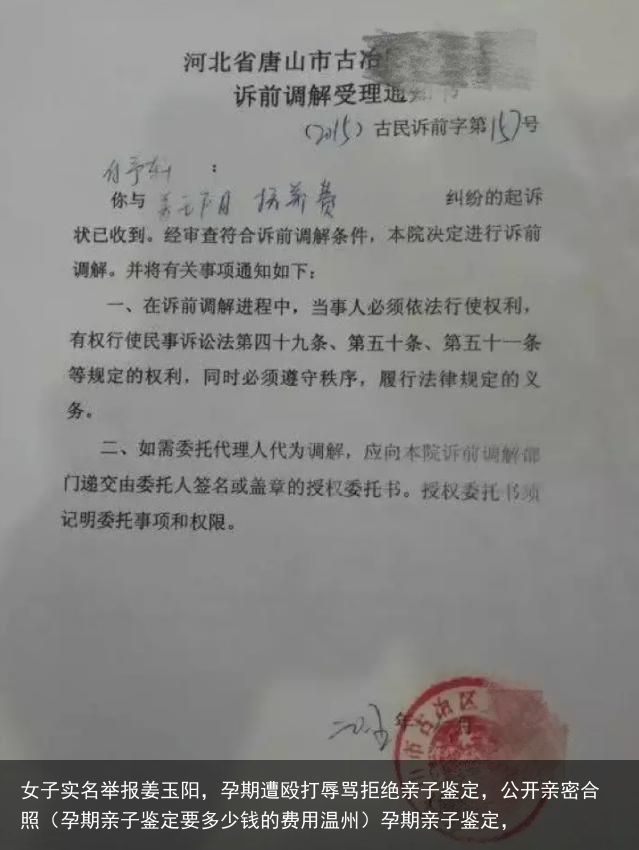 河北省唐山市古冶
诉前调解受理通知书
（2015）古民诉前字第157号
：
你与 姜玉阳 抚养费 纠纷的起诉
状已收到。经审查符合诉前调解条件，本院决定进行诉前
调解。并将有关事项通知如下：
一、在诉前调解进程中，当事人必须依法行使权利，
有权行使民事诉讼法第四十九条、第五十条、第五十一条
等规定的权利，同时必须遵守秩序，履行法律规定的义
务。
二、如需委托代理人代为调解，应向本院诉前调解部
门递交由委托人签名或盖章的授权委托书。授权委托书须
记明委托事项和权限。
年 月
市古冶区
女子实名举报姜玉阳，孕期遭殴打辱骂拒绝亲子鉴定，公开亲密合
照（孕期亲子鉴定要多少钱的费用温州）孕期亲子鉴定，